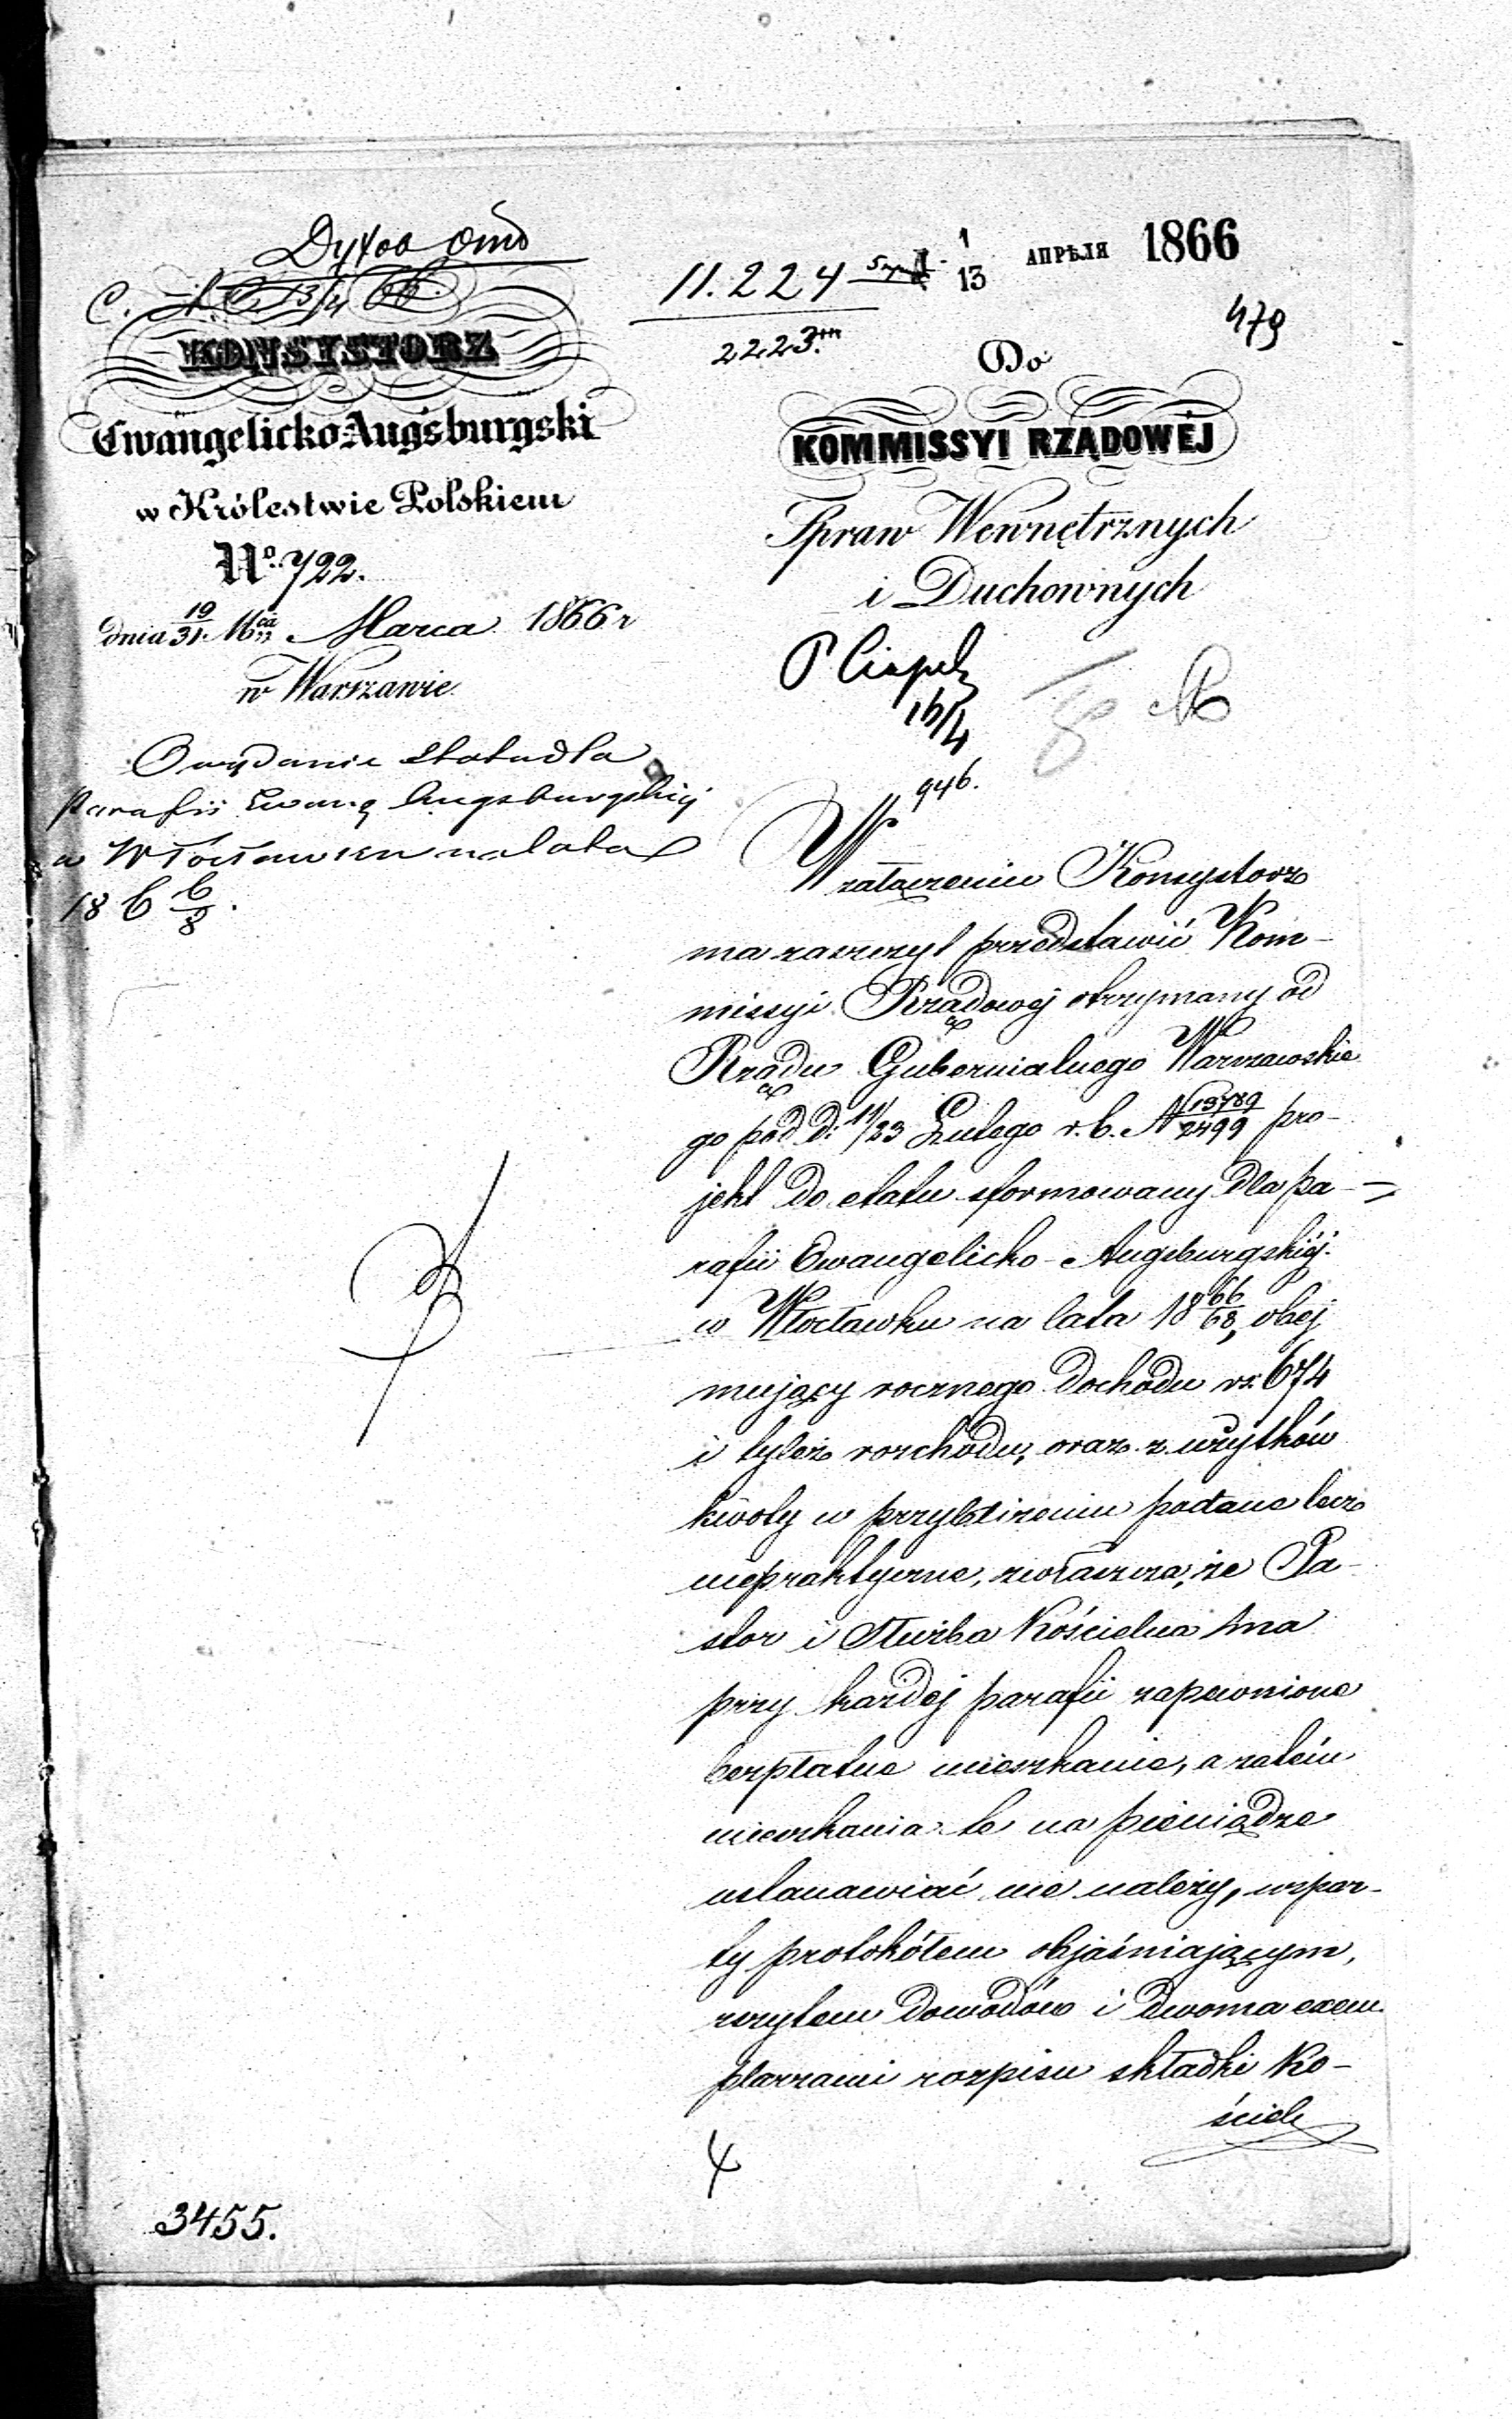 11.224
2223.
1/13 АПРѢЛЯ 1866
479
KONSYSTORZ
Ewangelicko-Augsburgski
w Królestwie Polskiem
No. 722.
dnia 19/31 Mca Marca 1866 r
w Warszawie.
O wydanie etatu dla
Parafii Ewang Augsburgskiej
w Włocławku na lata
186 6/8.
Do
KOMMISSYI RZĄDOWÉJ
Spraw Wewnętrznych
i Duchownych
16/4
946.
W załączeniu Konsystorz
ma zaszczyt przedstawić Kom-
missyi Rządowej otrzymany od
Rządu Gubernialnego Warszawskie
go pod d: 11/23 Lutego r. b. N 13789/2499 pro-
jekt do etatu sformowany dla pa-
rafii Ewangelicko-Augsburgskiéj
w Włocławku na lata 18 66/68, obej
mujący rocznego dochodu rs. 674
i tyleż rozchodu, oraz z użytków
kwoty w przybliżeniu podane lecz
niepraktyczne, zwłaszcza, że Pa-
stor i Służba Kościelna ma
przy każdej parafii zapewnione
bezpłatne mieszkanie, a zatém
mieszkania te na pieniądze
ustanawiać nie należy, wspar-
ty protokółem objaśniającym,
zszytem dowodów i dwoma exem
plarzami rozpisu składki Ko-
ściel
3455.